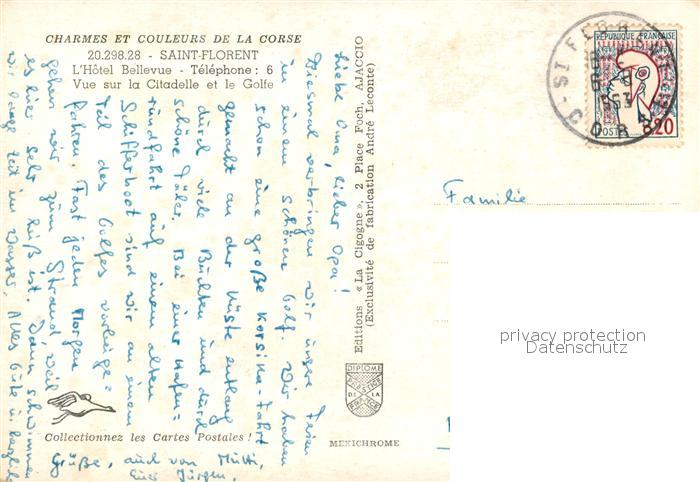 CHARMES ET COULEURS DE LA CORSE
20.298.28 - SAINT-FLORENT
L'Hôtel Bellevue - Téléphone : 6
Vue sur la Citadelle et le Golfe
Liebe Oma, lieber Opa!
Diesmal verbringen wir unsere Ferien
in einem schönen Golf. Wir haben
schon eine große Korsika-Fahrt
gemacht an der Küste entlang
durch viele Buchten und durch
schöne Täler. Bei einer Hafen=
rundfahrt auf einem alten
Schifferboot sind wir an einem
Teil des Golfes vorbeige=
fahren. Fast jeden Morgen
gehen wir zum Strand, weil
es hier sehr heiß ist. Dann schwimmen
wir lange Zeit im Wasser. Alles Gute u. herzliche
Grüße, auch von Mutti,
Euer Jürgen.
Collectionnez les Cartes Postales !
Editions « La Cigogne », 2 Place Foch, AJACCIO
(Exclusivité de fabrication André Leconte)
DIPLOME
PRESTIGE
DE LA
FRANCE
MEXICHROME
REPUBLIQUE FRANÇAISE
POSTES
0,20
Familie
privacy protection
Datenschutz